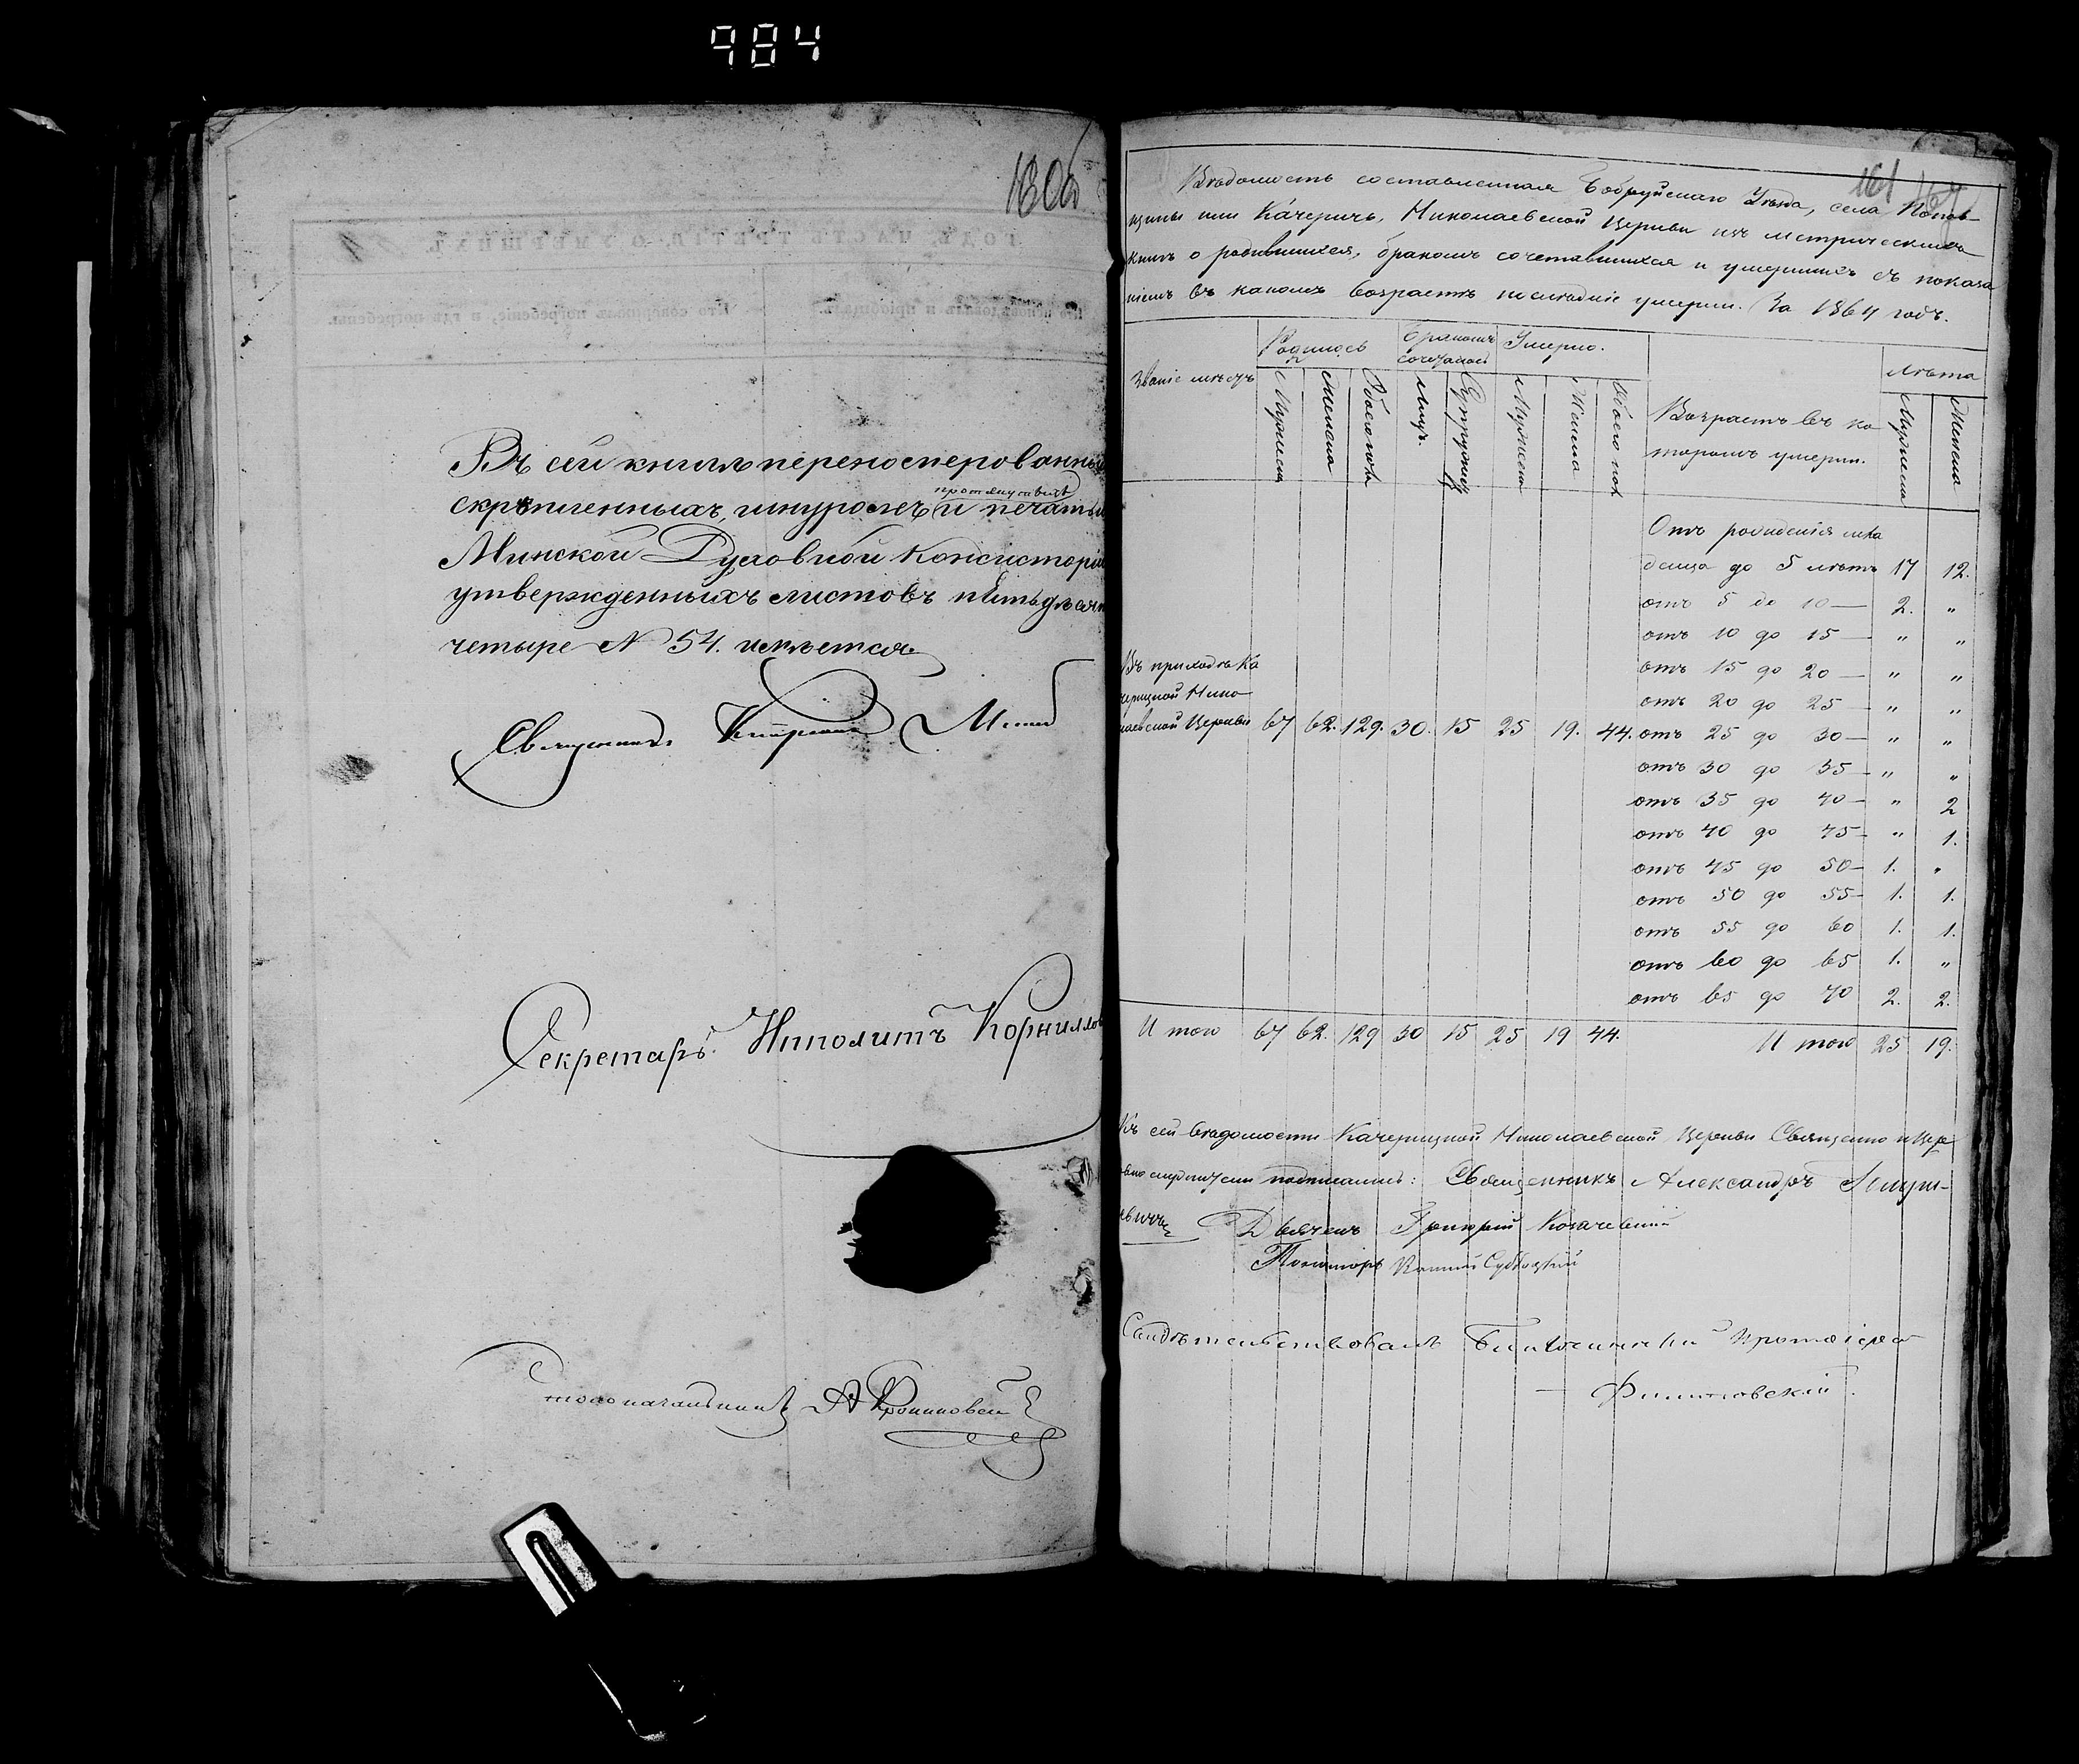 984
180об
Въ сей книгѣ переносмерованныхъ
скрѣпленныхъ, шнуромъ и печатью
протянутыхъ
Минской Духовной Консисторіи
утвержденныхъ листовъ пятьдесятъ
четыре № 54. имѣется
Священникъ
Секретарь Ипполитъ Корниллов
Столоначальникъ А
161
Вѣдомость составленная Бобруйскаго Уѣзда, села Попов-
щины или Качеричъ, Николаевской Церкви изъ метрическихъ
книгъ о родившихся, бракомъ сочетавшихся и умершихъ съ показа
ніемъ въ какомъ возрастѣ послѣдніе умерли. За 1864 годъ.
Званіе мѣстъ
Родилось
Бракомъ сочеталось
Умерло.
Возрастъ въ ко-
торомъ умерли.
Лѣта
Мужеска Женска Обоего пола Лицъ. Супружествъ Мужеска Женска Обоего пол Мужеска Женска
Отъ рожденія мла
денца до 5 лѣтъ 17 12.
отъ 5 до 10 — 2. "
отъ 10 до 15 — " "
отъ 15 до 20 — " "
отъ 20 до 25 — " "
Въ приходѣ Ка
черицкой Нико-
лаевской Церкви 67 62. 129. 30. 15 25 19. 44.
отъ 25 до 30 — " "
отъ 30 до 35 — " "
отъ 35 до 40 — " 2
отъ 40 до 45 — " 1.
отъ 45 до 50 — 1. "
отъ 50 до 55 — 1. 1.
отъ 55 до 60 1. 1.
отъ 60 до 65 1. "
отъ 65 до 70 2. 2.
Итого 67 62. 129 30 15 25 19 44. Итого 25 19.
Къ сей вѣдомости Качерицкой Николаевской Церкви Священно и Цер
ковно служители подписались: Священникъ Александръ
Дьячекъ Григорій
Пономорь
Свидѣтельствовалъ Благочинный Протоіерей